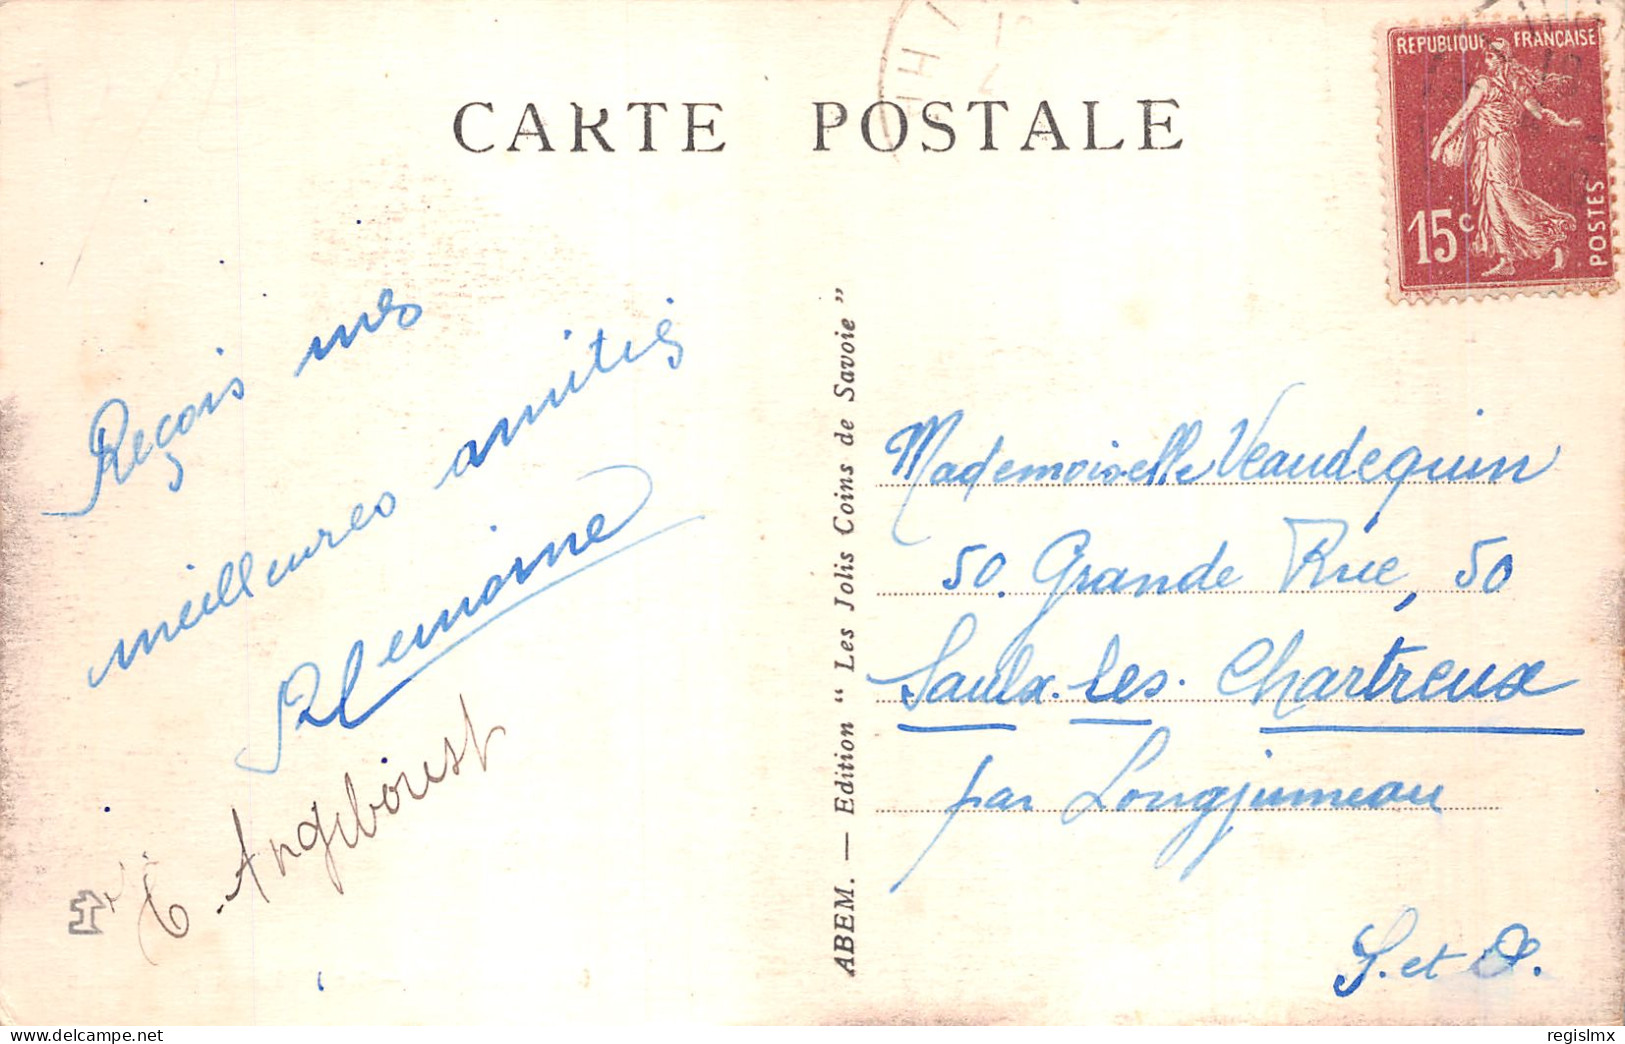 CARTE POSTALE
REPUBLIQUE FRANÇAISE
15c
POSTES
Reçois mes
meilleures amitiés
Angeboust
ABEM. — Edition “ Les Jolis Coins de Savoie ”
Mademoiselle Veaudequin
50 Grande Rue, 50
Saulx-les-Chartreux
par Longjumeau
S. et O.
Delcampe.net
regislmx